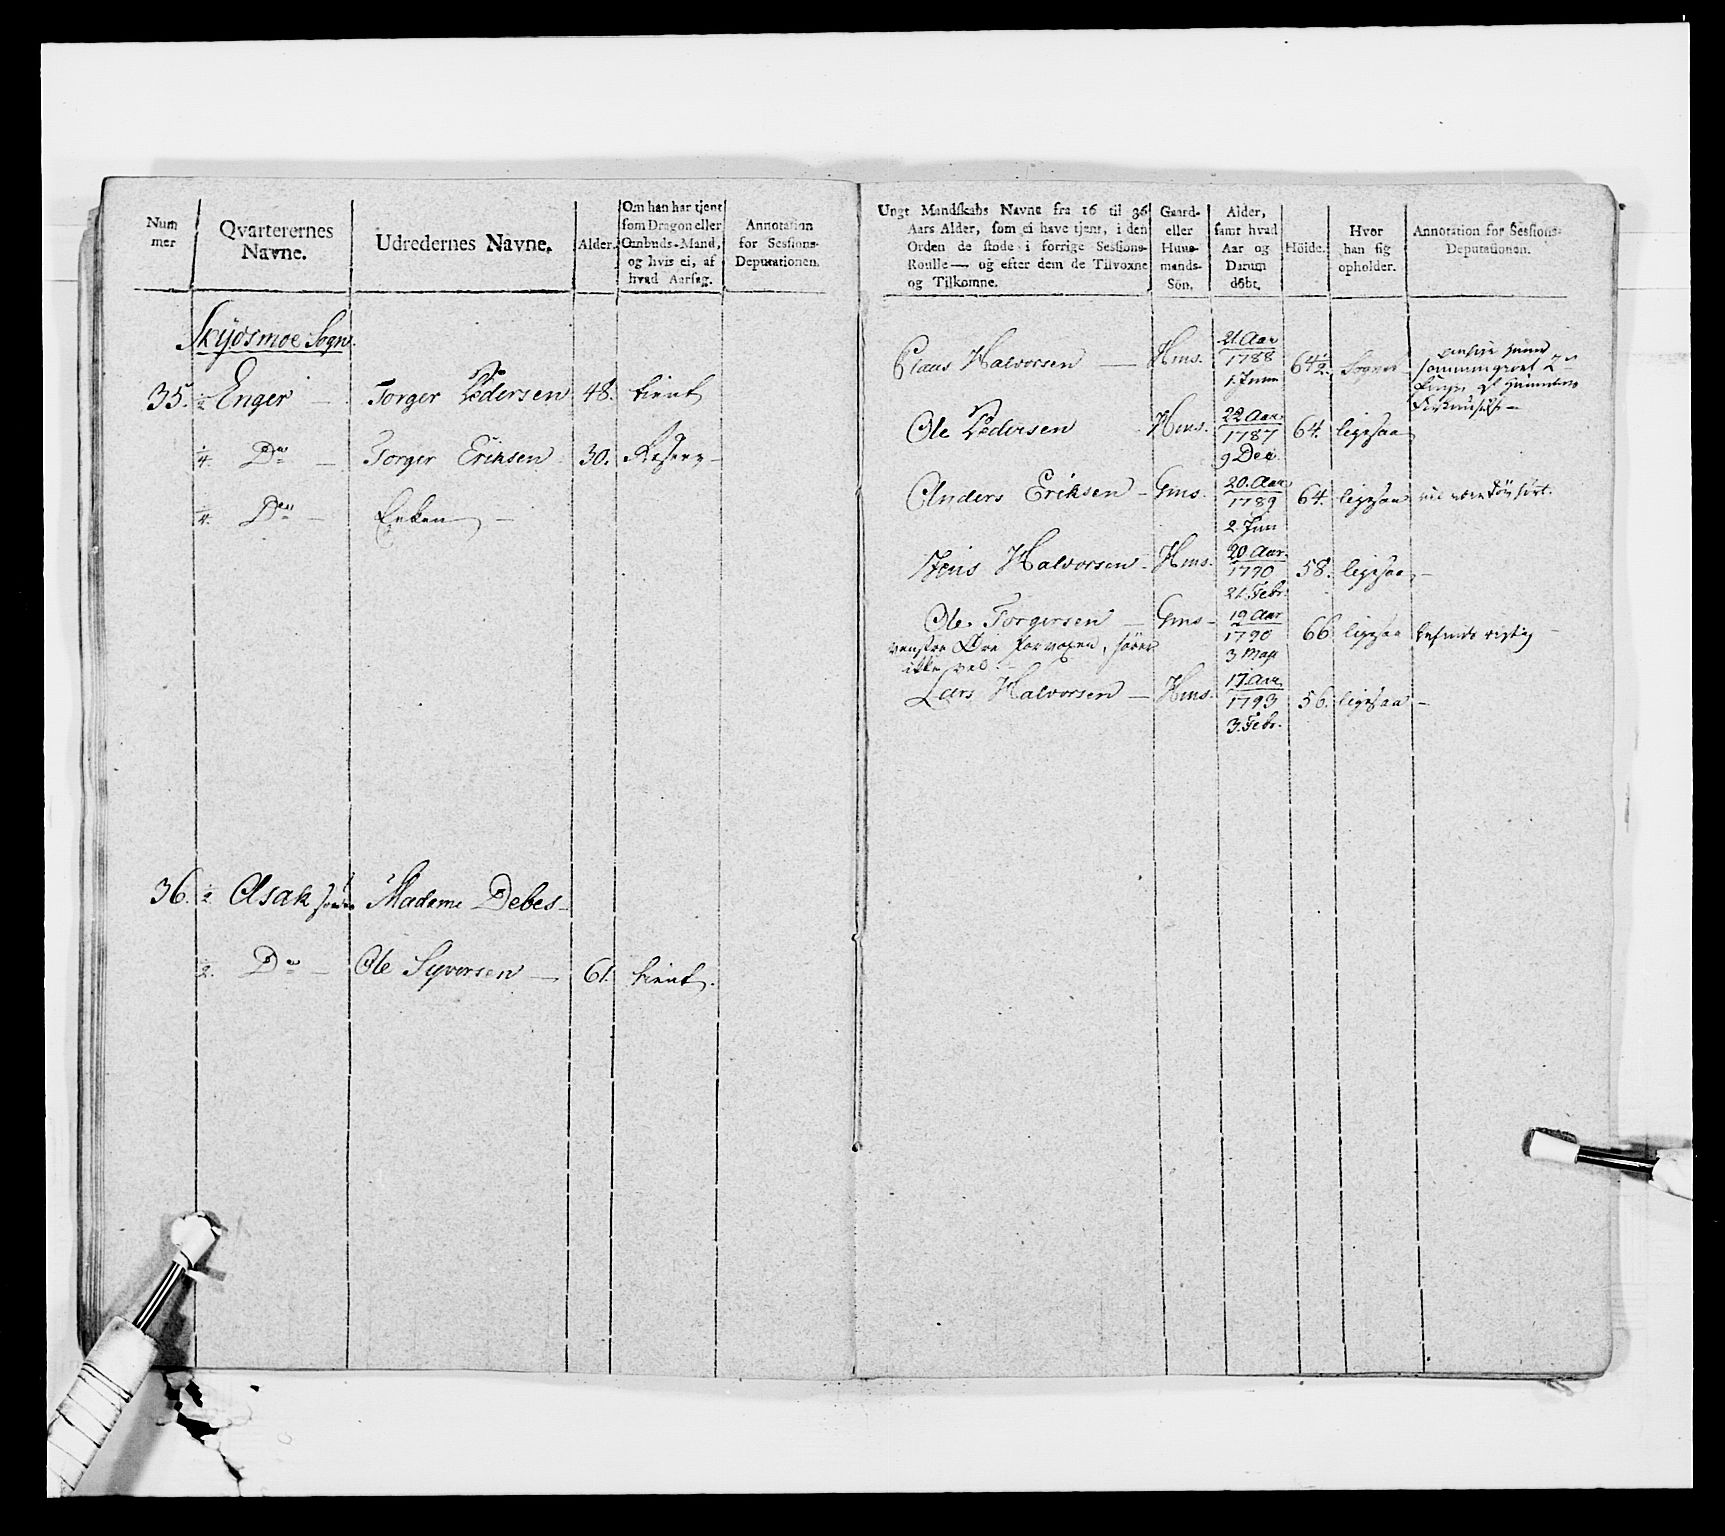 Num
mer
Qvarterernes
Navne.
Udredernes Navne.
Alder.
Om han har tjent
som Dragon eller
Ombuds-Mand,
og hvis ei, af
hvad Aarsag.
Annotation
for Sessions-
Deputationen.
Skydsmoe Sogn
35. 1/2 Enger — Torger Pedersen 48. tient
1/4 Do — Torger Eriksen 30. Reserv —
1/4 Do — Enken —
36. 1/2 Asak Madame Debes —
1/2. Do — Ole Syversen — 61. tient.
Ungt Mandskabs Navne fra 16 til 36
Aars Alder, som ei have tjent, i den
Orden de stode i forrige Sessions-
Roulle— og efter dem de Tilvoxne
og Tilkomne.
Gaard-
eller
Huus-
mands-
Sön.
Alder,
samt hvad
Aar og
Datum
döbt.
Höide.
Hvor
han sig
opholder.
Annotation for Sessions-
Deputationen.
Claus Halvorsen — Hms. 21. Aar 1788 1. Junii 64 1/2. Sognet
Ole Pedersen Hms. 22 Aar 1787 9 Dec. 64. ligesaa
Anders Eriksen — Gms. 20. Aar 1789 2. Jun 64. ligesaa
Jens Halvorsen — Hms. 20 Aar. 1790 21. Febr. 58. ligesaa —
Ole Torgersen — Gms — 19 Aar 1790 3 May 66 ligesaa befindes rigtig —
venstre Øre forvoxen, hører
ikke vel. —
Lars Halvorsen — Hms. 17. Aar 1793 3. Febr. 56. ligesaa —